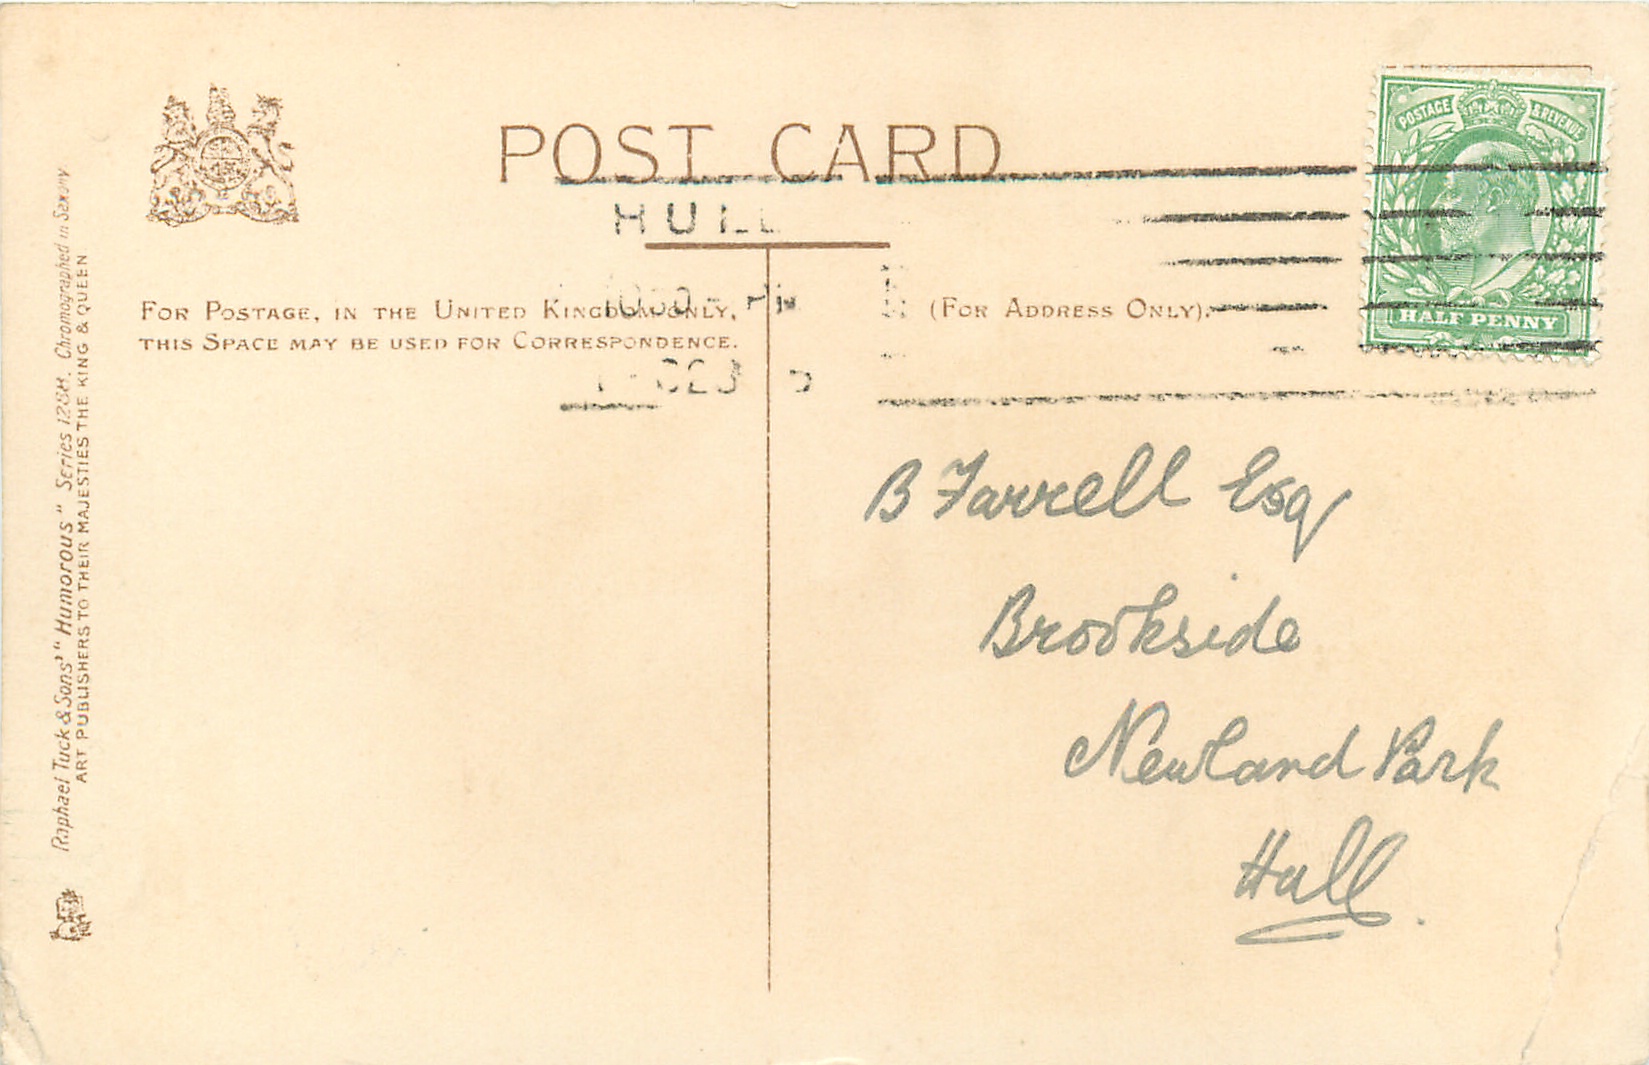 POST CARD
HULL
FOR POSTAGE, IN THE UNITED KINGDOM ONLY,
THIS SPACE MAY BE USED FOR CORRESPONDENCE.
(FOR ADDRESS ONLY).
POSTAGE & REVENUE
HALF PENNY
B Farrell Esq
Brookside
Newland Park
Hull.
Raphael Tuck & Sons' "Humorous" Series 1288. Chromographed in Saxony
ART PUBLISHERS TO THEIR MAJESTIES THE KING & QUEEN